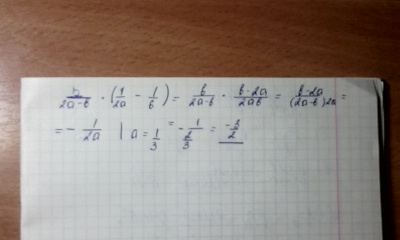 b/(2a-b) · (1/2a - 1/b) = b/(2a-b) · (b-2a)/2ab = (b-2a)/((2a-b)2a) =
= - 1/2a | a = 1/3 = - 1/(2/3) = -3/2